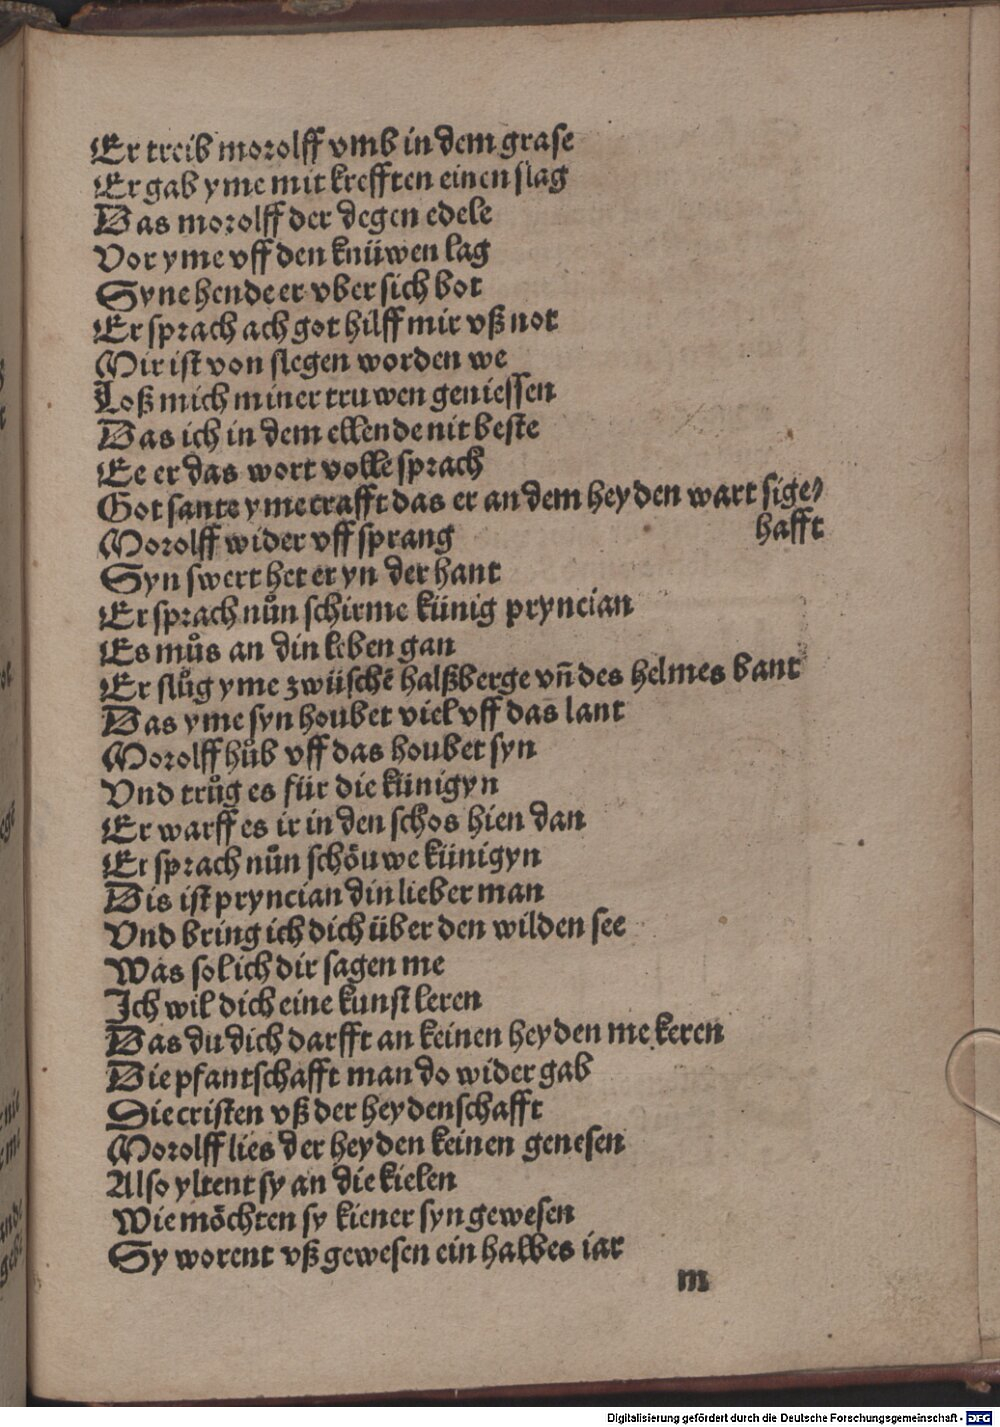 Er treib morolff vmb in dem grase
Er gab yme mit krefften einen slag
Das morolff der degen edele
Vor yme vff den knüwen lag
Syne hende er vber sich bot
Er sprach ach got hilff mir vß not
Mir ist von slegen worden we
Loß mich miner truwen geniessen
Das ich in dem ellende nit beste
Ee er das wort volle sprach
Got sante yme crafft das er an dem heyden wart sige⸗
hafft
Morolff wider vff sprang
Syn swert het er yn der hant
Er sprach nůn schirme künig pryncian
Es můs an din leben gan
Er slůg yme zwüschē halßberge vñ des helmes bant
Das yme syn houbet viel vff das lant
Morolff hůb vff das houbet syn
Vnd trůg es für die künigyn
Er warff es ir in den schos hien dan
Er sprach nůn schöuwe künigyn
Dis ist pryncian din lieber man
Vnd bring ich dich über den wilden see
Was sol ich dir sagen me
Ich wil dich eine kunst leren
Das du dich darfft an keinen heyden me keren
Die pfantschafft man do wider gab
Die cristen vß der heydenschafft
Morolff lies der heyden keinen genesen
Also yltent sy an die kielen
Wie möchten sy kiener syn gewesen
Sy worent vß gewesen ein halbes iar
m
Digitalisierung gefördert durch die Deutsche Forschungsgemeinschaft - DFG